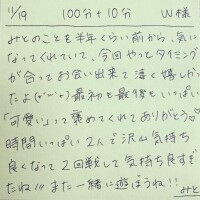 11/19 100分+10分 W様
みとのことを半年くらい前から、気に
なってくれていて、今回やっとタイミング
が合ってお会い出来て凄く嬉しかっ
たよ(*´ー`*)最初と最後といっぱい
「可愛い」って褒めてくれてありがとう♡
時間いっぱい2人で沢山気持ち
良くなって2回戦して気持ち良すぎ
たね//また一緒に遊ぼうね!!
みと